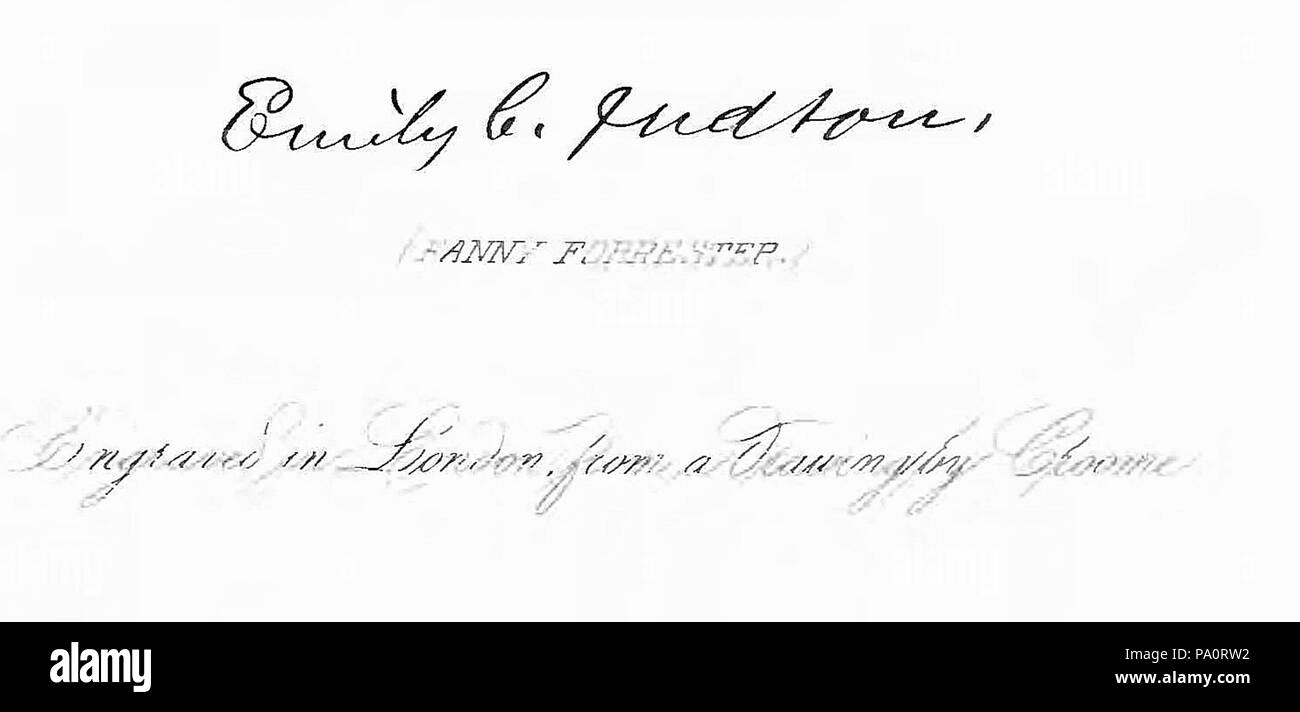 Emily C. Judson.
(FANNY FORRESTER.)
Engraved in London, from a Drawing by Croome
alamy
Image ID: PA0RW2
www.alamy.com